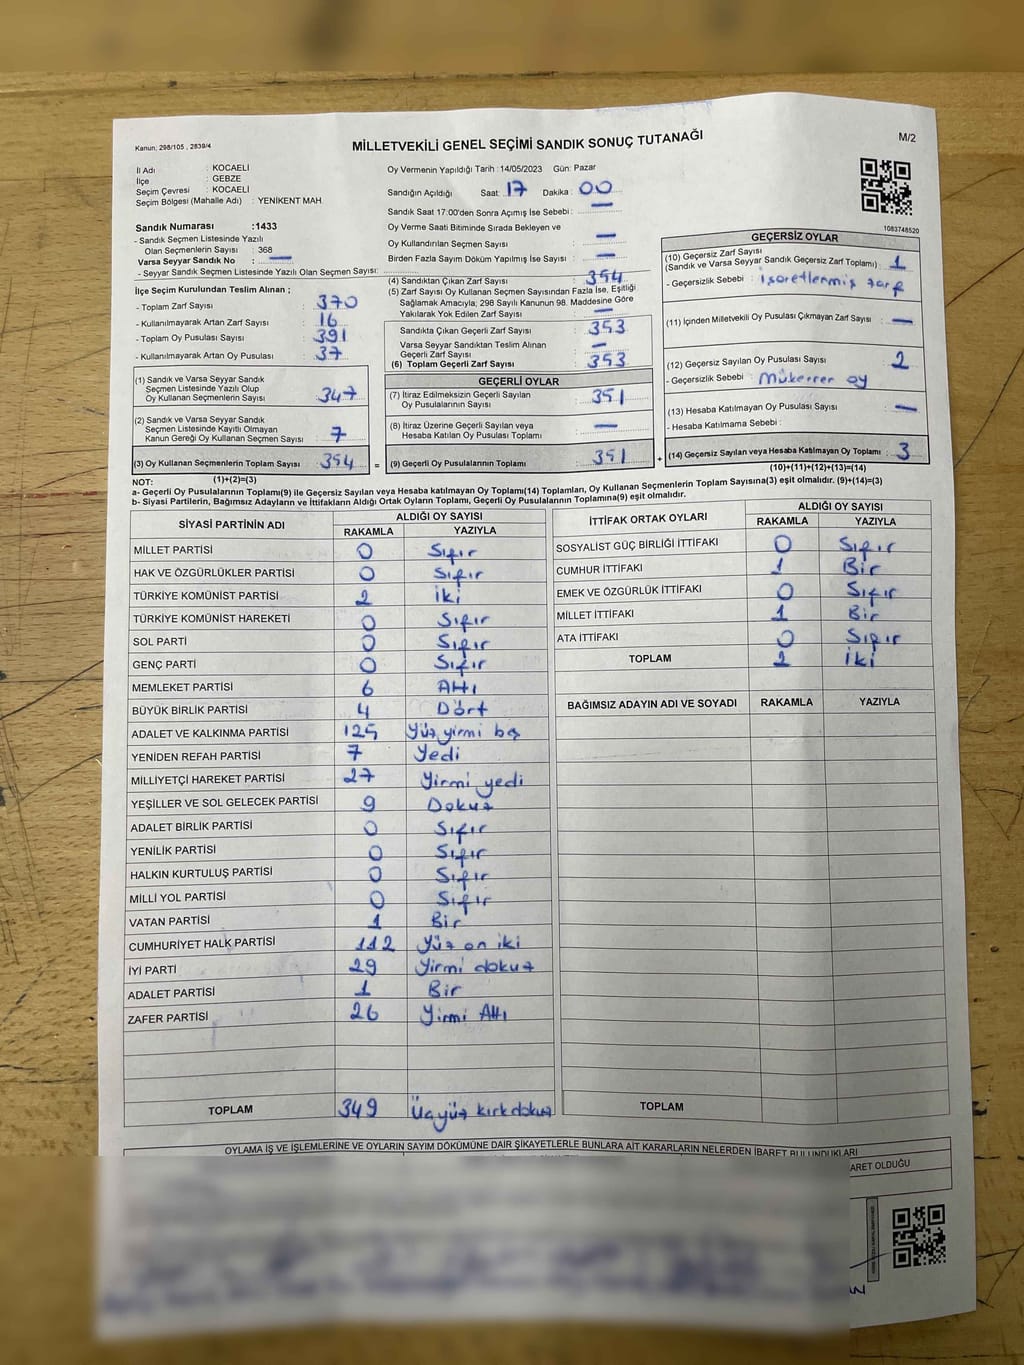 Kanun: 298/105 , 2839/4
MİLLETVEKİLİ GENEL SEÇİMİ SANDIK SONUÇ TUTANAĞI
M/2
İl Adı : KOCAELİ
İlçe : GEBZE
Seçim Çevresi : KOCAELİ
Seçim Bölgesi (Mahalle Adı) : YENİKENT MAH.
Sandık Numarası :1433
- Sandık Seçmen Listesinde Yazılı
Olan Seçmenlerin Sayısı : 368
Varsa Seyyar Sandık No : —
- Seyyar Sandık Seçmen Listesinde Yazılı Olan Seçmen Sayısı:
İlçe Seçim Kurulundan Teslim Alınan ;
- Toplam Zarf Sayısı : 370
- Kullanılmayarak Artan Zarf Sayısı : 16
- Toplam Oy Pusulası Sayısı : 391
- Kullanılmayarak Artan Oy Pusulası : 37
(1) Sandık ve Varsa Seyyar Sandık
Seçmen Listesinde Yazılı Olup
Oy Kullanan Seçmenlerin Sayısı : 347
(2) Sandık ve Varsa Seyyar Sandık
Seçmen Listesinde Kayıtlı Olmayan
Kanun Gereği Oy Kullanan Seçmen Sayısı : 7
(3) Oy Kullanan Seçmenlerin Toplam Sayısı : 354 =
Oy Vermenin Yapıldığı Tarih : 14/05/2023 Gün: Pazar
Sandığın Açıldığı Saat: 17 Dakika : 00
Sandık Saat 17:00'den Sonra Açılmış İse Sebebi : —
Oy Verme Saati Bitiminde Sırada Bekleyen ve
Oy Kullandırılan Seçmen Sayısı : —
Birden Fazla Sayım Döküm Yapılmış İse Sayısı : —
(4) Sandıktan Çıkan Zarf Sayısı : 354
(5) Zarf Sayısı Oy Kullanan Seçmen Sayısından Fazla İse, Eşitliği
Sağlamak Amacıyla, 298 Sayılı Kanunun 98. Maddesine Göre
Yakılarak Yok Edilen Zarf Sayısı : —
Sandıkta Çıkan Geçerli Zarf Sayısı : 353
Varsa Seyyar Sandıktan Teslim Alınan
Geçerli Zarf Sayısı : —
(6) Toplam Geçerli Zarf Sayısı : 353
GEÇERLİ OYLAR
(7) İtiraz Edilmeksizin Geçerli Sayılan
Oy Pusulalarının Sayısı : 351
(8) İtiraz Üzerine Geçerli Sayılan veya
Hesaba Katılan Oy Pusulaları Toplamı : —
(9) Geçerli Oy Pusulalarının Toplamı : 351 +
1083748520
GEÇERSİZ OYLAR
(10) Geçersiz Zarf Sayısı
(Sandık ve Varsa Seyyar Sandık Geçersiz Zarf Toplamı) : 1
- Geçersizlik Sebebi : işaretlenmiş zarf
(11) İçinden Milletvekili Oy Pusulası Çıkmayan Zarf Sayısı : —
(12) Geçersiz Sayılan Oy Pusulası Sayısı : 2
- Geçersizlik Sebebi : Mükerrer oy
(13) Hesaba Katılmayan Oy Pusulası Sayısı : —
- Hesaba Katılmama Sebebi :
(14) Geçersiz Sayılan veya Hesaba Katılmayan Oy Toplamı : 3
NOT: (1)+(2)=(3) (10)+(11)+(12)+(13)=(14)
a- Geçerli Oy Pusulalarının Toplamı(9) ile Geçersiz Sayılan veya Hesaba katılmayan Oy Toplamı(14) Toplamları, Oy Kullanan Seçmenlerin Toplam Sayısına(3) eşit olmalıdır. (9)+(14)=(3)
b- Siyasi Partilerin, Bağımsız Adayların ve İttifakların Aldığı Ortak Oyların Toplamı, Geçerli Oy Pusulalarının Toplamına(9) eşit olmalıdır.
SİYASİ PARTİNİN ADI ALDIĞI OY SAYISI
RAKAMLA YAZIYLA
MİLLET PARTİSİ 0 Sıfır
HAK VE ÖZGÜRLÜKLER PARTİSİ 0 Sıfır
TÜRKİYE KOMÜNİST PARTİSİ 2 İki
TÜRKİYE KOMÜNİST HAREKETİ 0 Sıfır
SOL PARTİ 0 Sıfır
GENÇ PARTİ 0 Sıfır
MEMLEKET PARTİSİ 6 Altı
BÜYÜK BİRLİK PARTİSİ 4 Dört
ADALET VE KALKINMA PARTİSİ 125 Yüz yirmi beş
YENİDEN REFAH PARTİSİ 7 Yedi
MİLLİYETÇİ HAREKET PARTİSİ 27 Yirmi yedi
YEŞİLLER VE SOL GELECEK PARTİSİ 9 Dokuz
ADALET BİRLİK PARTİSİ 0 Sıfır
YENİLİK PARTİSİ 0 Sıfır
HALKIN KURTULUŞ PARTİSİ 0 Sıfır
MİLLİ YOL PARTİSİ 0 Sıfır
VATAN PARTİSİ 1 Bir
CUMHURİYET HALK PARTİSİ 112 Yüz on iki
İYİ PARTİ 29 Yirmi dokuz
ADALET PARTİSİ 1 Bir
ZAFER PARTİSİ 26 Yirmi Altı
TOPLAM 349 Üçyüz kırk dokuz
İTTİFAK ORTAK OYLARI ALDIĞI OY SAYISI
RAKAMLA YAZIYLA
SOSYALİST GÜÇ BİRLİĞİ İTTİFAKI 0 Sıfır
CUMHUR İTTİFAKI 1 Bir
EMEK VE ÖZGÜRLÜK İTTİFAKI 0 Sıfır
MİLLET İTTİFAKI 1 Bir
ATA İTTİFAKI 0 Sıfır
TOPLAM 2 İki
BAĞIMSIZ ADAYIN ADI VE SOYADI RAKAMLA YAZIYLA
TOPLAM
OYLAMA İŞ VE İŞLEMLERİNE VE OYLARIN SAYIM DÖKÜMÜNE DAİR ŞİKAYETLERLE BUNLARA AİT KARARLARIN NELERDEN İBARET BULUNDUKLARI
ARET OLDUĞU